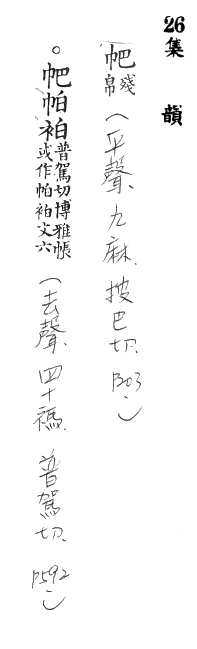 26集 韻
帊 殘帛（平聲．九麻．披巴切．P203．）
。帊帕袙 普駕切博雅帳或作帕袙文六（去聲．四十禡．普駕切．P592．）